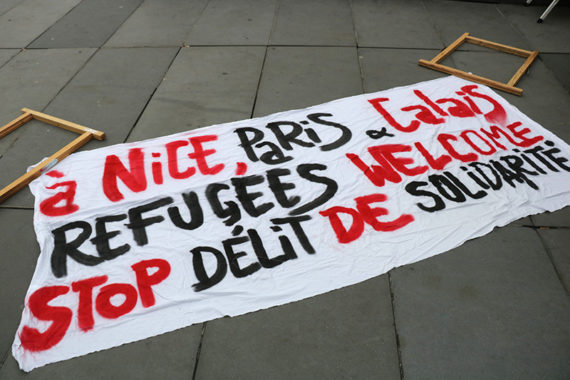 à NiCE, PARis & CALAis
REFUGEES WELCOME
STOP DÉLiT DE SOLiDARiTÉ